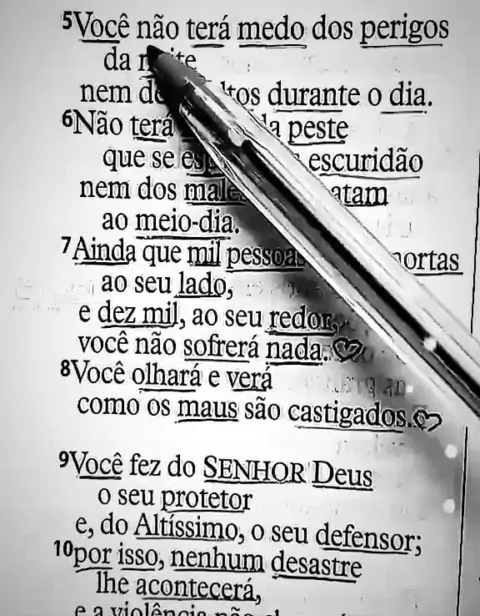 5Você não terá medo dos perigos
da
nem durante o dia.
6Não terá peste
que se escuridão
nem dos
ao meio-dia.
7Ainda que mil
ao seu lado,
e dez mil, ao seu redor,
você não sofrerá nada.
8Você olhará e verá
como os maus são castigados.
9Você fez do SENHOR Deus
o seu protetor
e, do Altíssimo, o seu defensor;
10por isso, nenhum desastre
lhe acontecerá,
e a violência não